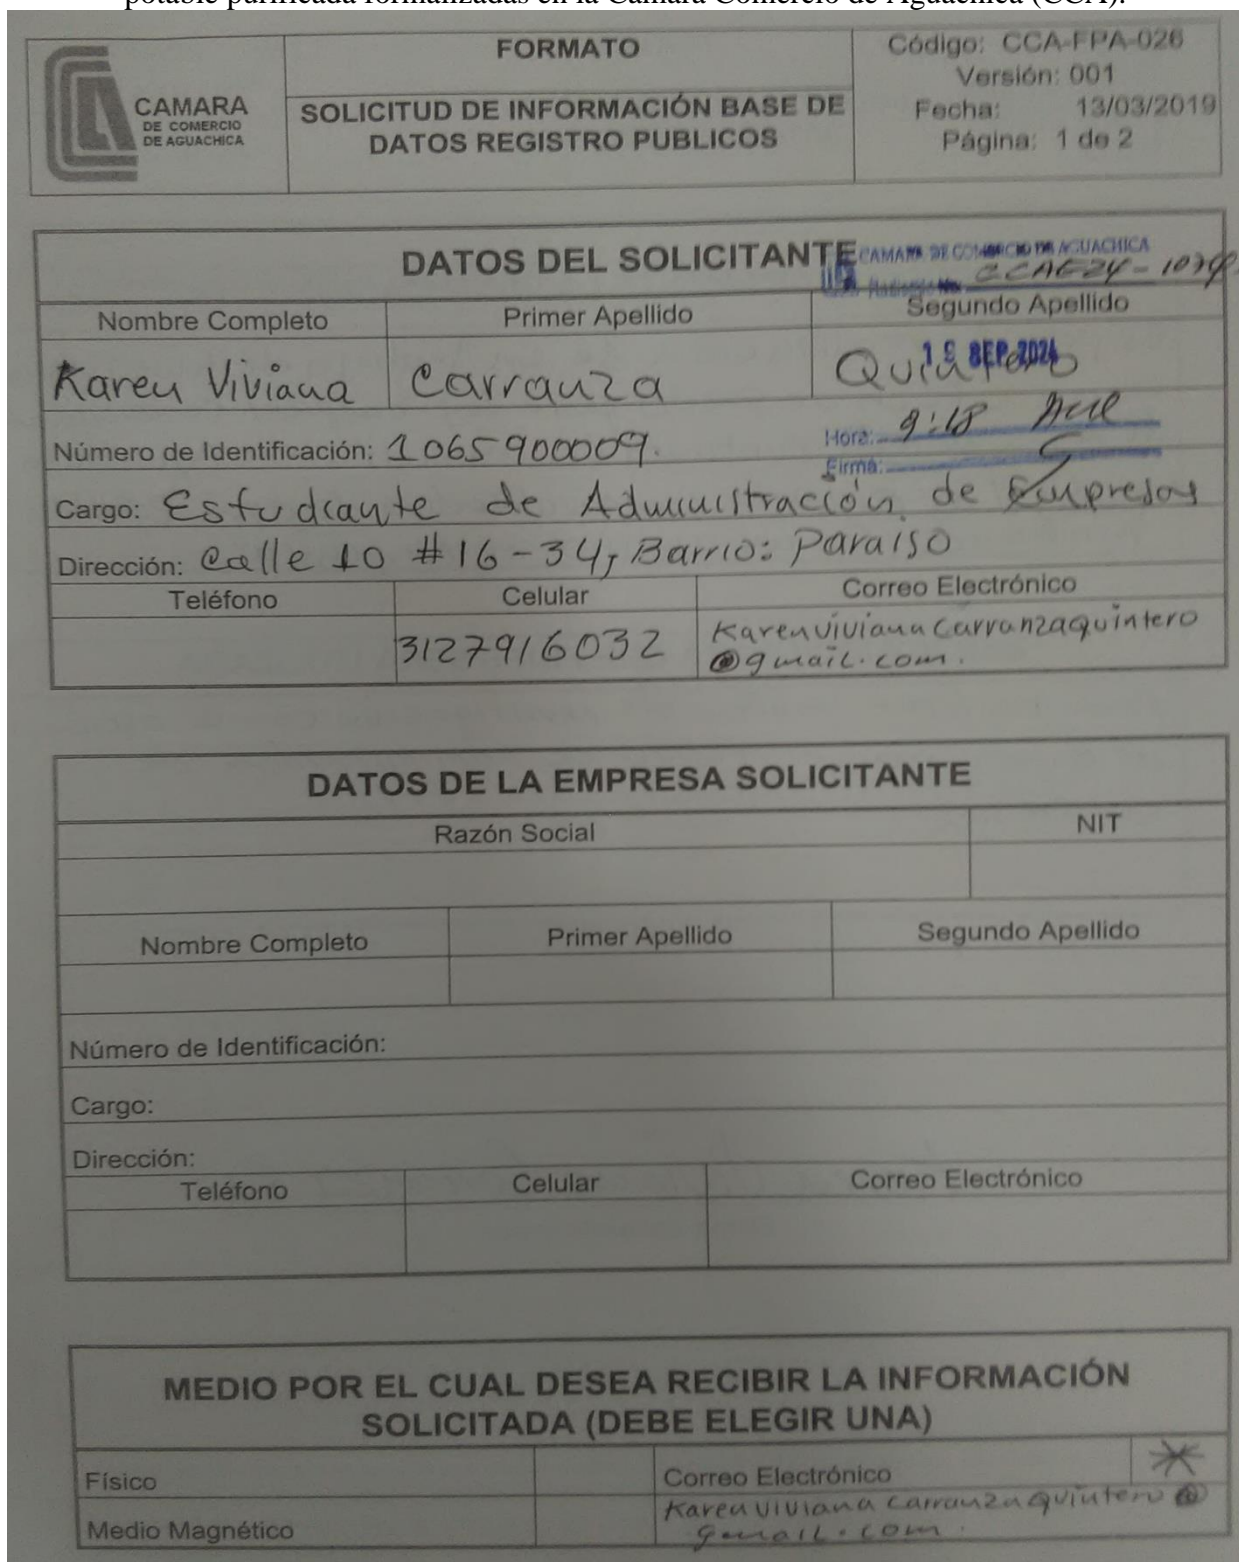 potable purificada formalizadas en la Cámara Comercio de Aguachica (CCA).
CAMARA
DE COMERCIO
DE AGUACHICA
FORMATO
SOLICITUD DE INFORMACIÓN BASE DE
DATOS REGISTRO PUBLICOS
Código: CCA-FPA-026
Versión: 001
Fecha: 13/03/2019
Página: 1 de 2
DATOS DEL SOLICITANTE
CAMARA DE COMERCIO DE AGUACHICA
Nombre Completo Primer Apellido Segundo Apellido
Karen Viviana Carranza Quintero
SEP 2024
Hora: 9:18
Número de Identificación: 1065900009.
Firma:
Cargo: Estudiante de Administración de Empresas
Dirección: Calle 10 #16-34, Barrio: Paraiso
Teléfono Celular Correo Electrónico
3127916032 Karenvivianacarranzaquintero
@gmail.com.
DATOS DE LA EMPRESA SOLICITANTE
Razón Social NIT
Nombre Completo Primer Apellido Segundo Apellido
Número de Identificación:
Cargo:
Dirección:
Teléfono Celular Correo Electrónico
MEDIO POR EL CUAL DESEA RECIBIR LA INFORMACIÓN
SOLICITADA (DEBE ELEGIR UNA)
Físico Correo Electrónico
Medio Magnético Karenvivianacarranzaquintero@
gmail.com.